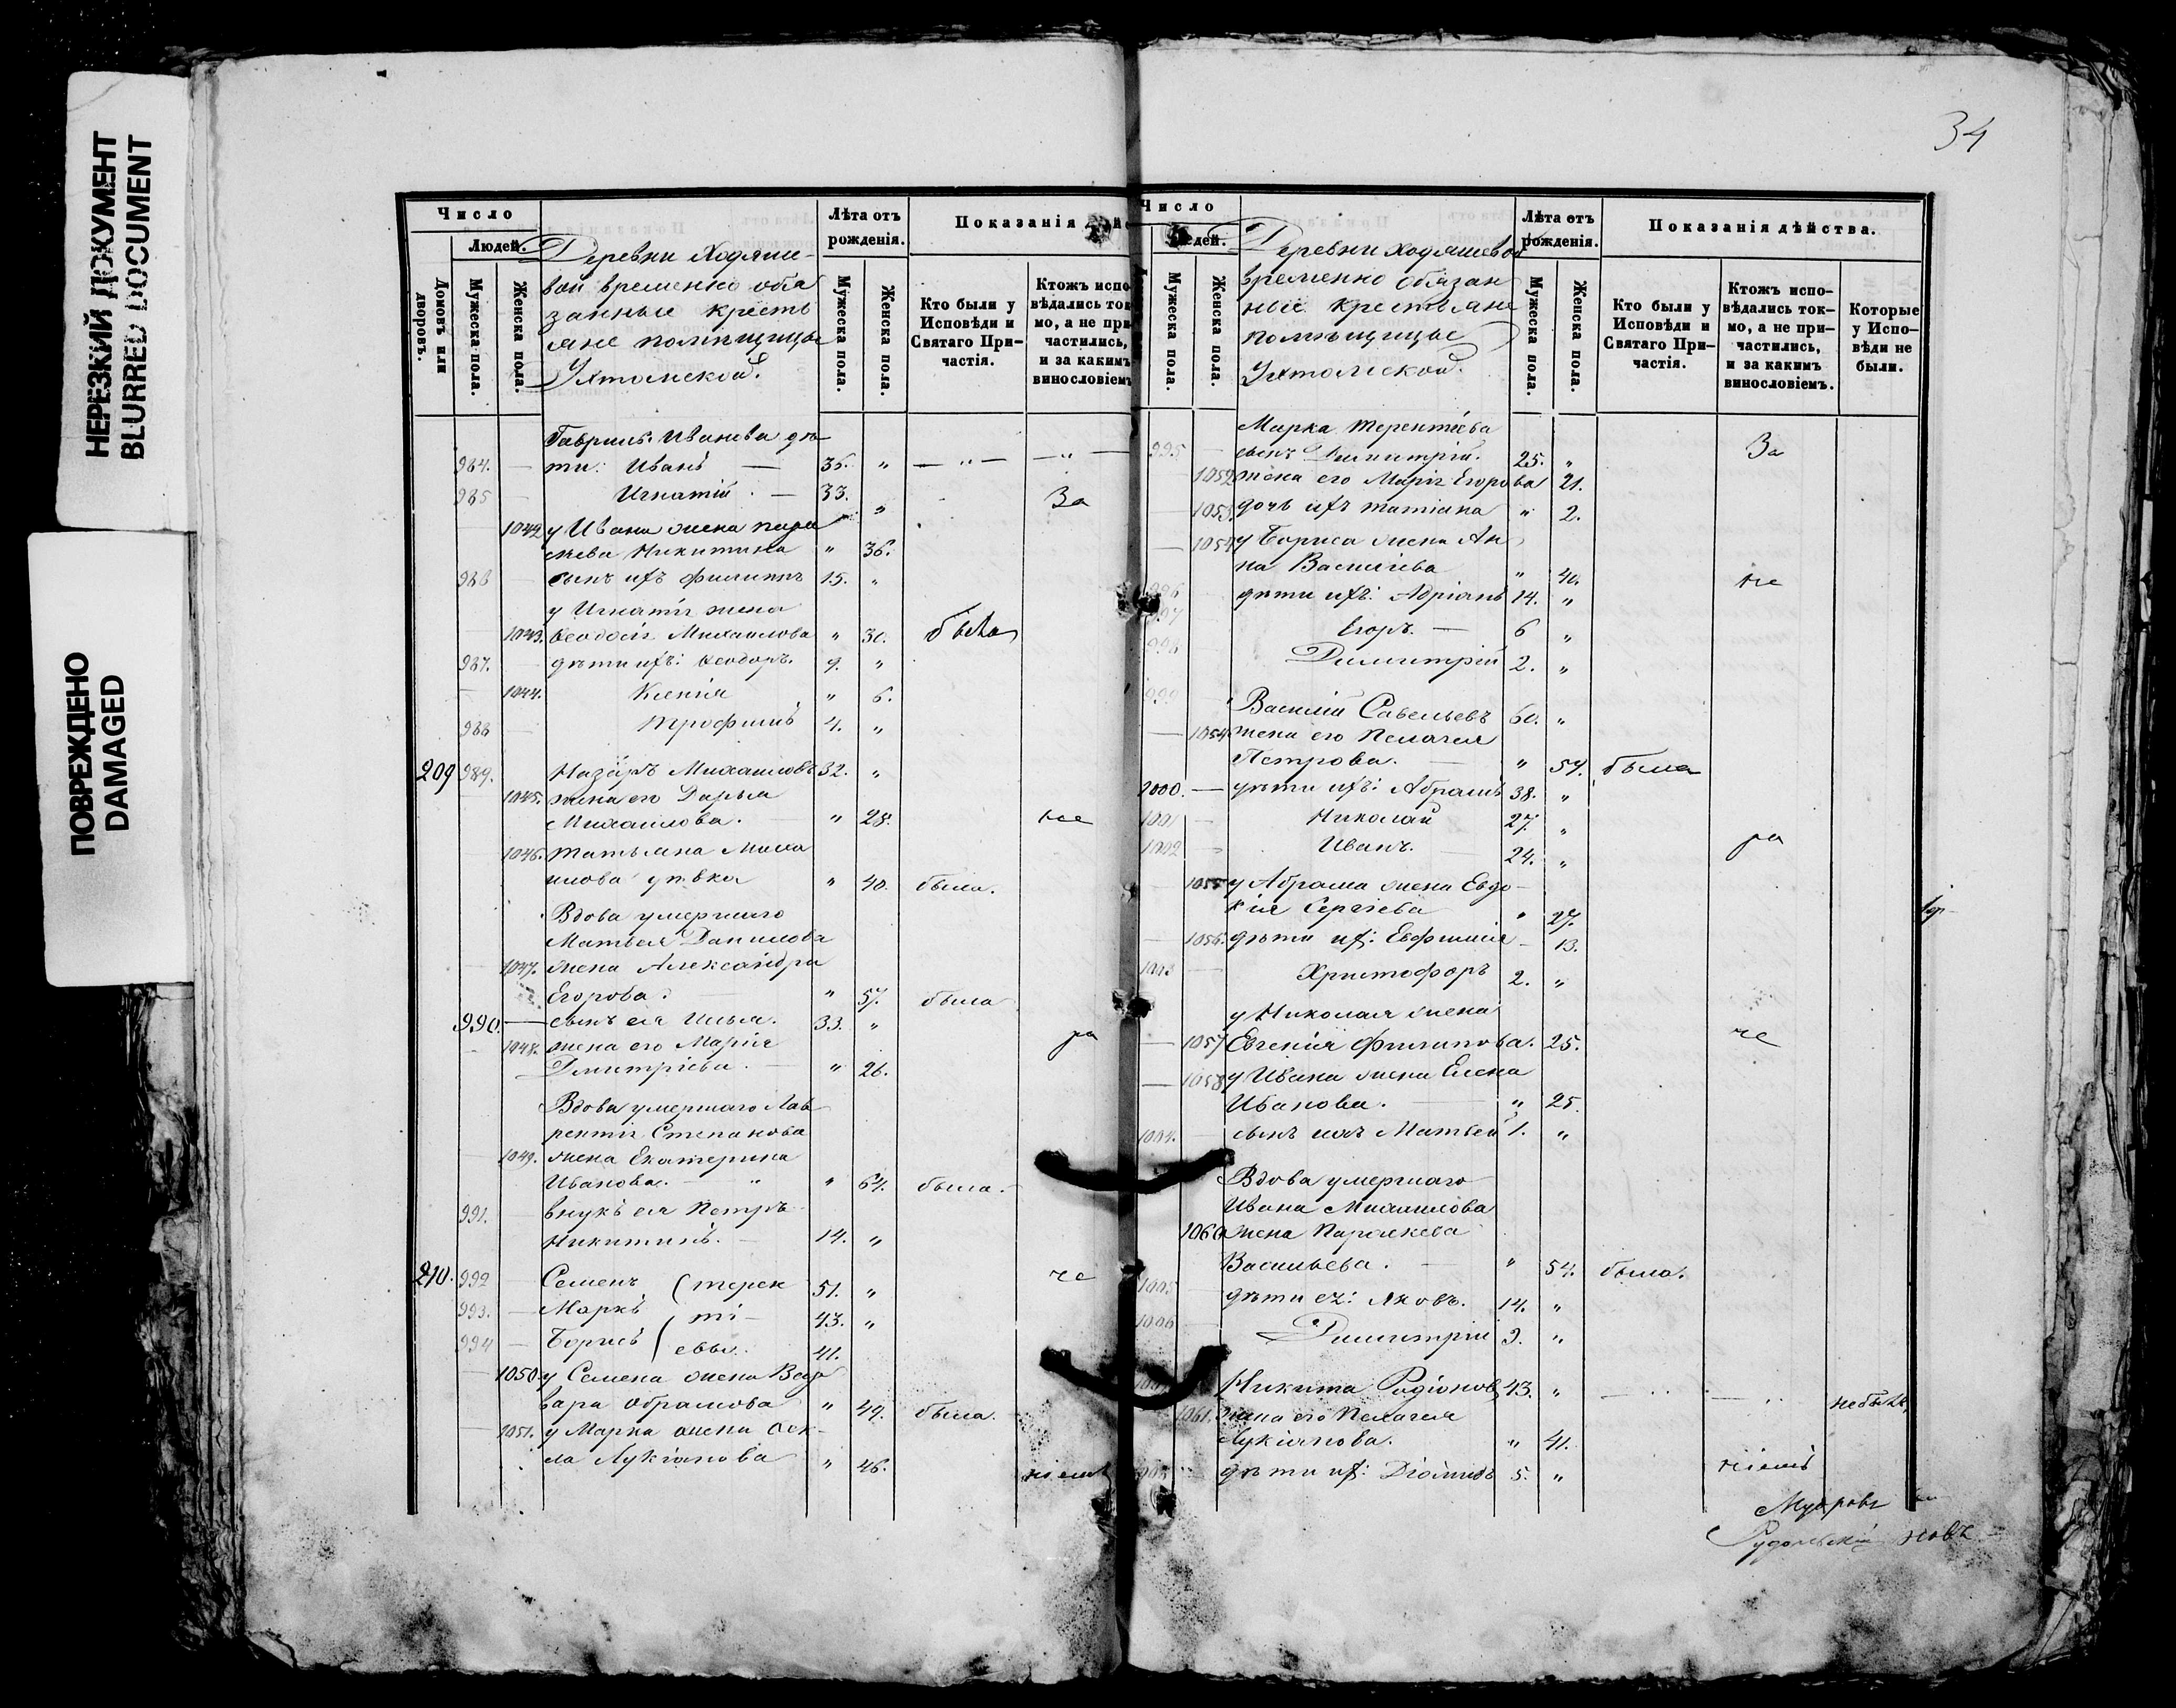 НЕРЕЗКИЙ ДОКУМЕНТ
BLURRED DOCUMENT
ПОВРЕЖДЕНО
DAMAGED
34
Число
Людей.
Домовъ или дворовъ.
Мужеска пола.
Женска пола.
Деревни Ходяше-
вой временно обя
занные кресть
яне помѣщицы
Ухтомской.
Лѣта отъ рожденія.
Мужеска пола.
Женска пола.
Показанія
Кто были у Исповѣди и Святаго При-частія.
Ктожъ испо-вѣдались ток-мо, а не при-частились, и за какимъ винословіемъ
Гавриила Иванова дѣ-
984. — ти: Иванъ — 36. „ — „ — — „ —
985 — Игнатій . — 33. „ За
1042 у Ивана жена пара
скева Никитина „ 36.
986 — сынъ ихъ Филиппъ 15. „
у Игнатія жена
1043. Ѳеодосія Михаилова „ 30. была
987. — дѣти ихъ: Ѳеодоръ. 9. „
1044. Ксенія „ 6.
988 — Трофимъ 4. „
209 989. Назаръ Михаиловъ 32. „
1045. жена его Дарья
Михаилова. „ 28. не
1046. Татьяна Миха
илова дѣвка „ 40. была.
Вдова умершаго
Матвея Данилова
1047. жена Александра
Егорова. „ 57. была
990. — сынъ ея Илья. 33. „ ра
1048. жена его Марія
Дмитріева. — „ 26.
Вдова умершаго Лав
рентія Степанова
1049. жена Екатерина
Иванова. — „ „ 64. была.
991. внукъ ея Петръ
Никитинъ. — 14. „
210. 992 Семенъ (терен 51. „ не
993. — Маркъ ті- 43. „
994 — Борисъ евы. 41.
1050 у Семена жена Вар
вара Абрамова „ 49. была.
1051. у Марка жена Ѳек-
ла Лукіанова „ 46. ніемъ
Число
Людей.
Мужеска пола.
Женска пола.
Деревни Ходяшевой
временно обязан
ные крестьяне
помѣщицы
Ухтомской.
Лѣта отъ рожденія.
Мужеска пола.
Женска пола.
Показанія дѣйства.
Кто были у Исповѣди и Святаго При-частія.
Ктожъ испо-вѣдались ток-мо, а не при-частились, и за какимъ винословіемъ.
Которые у Испо-вѣди не были.
Марка Терентіева
995 — сынъ Димитрій. 25. „ За
1052 жена его Марія Егорова 21.
1053. дочь ихъ Татіана „ 2.
1054 у Бориса жена Ан
на Василіева „ 40. не
996 дѣти ихъ: Адріанъ 14. „
997 Егоръ. — 6 „
998 Димитрій 2. „
999 Василій Савельевъ 60. „
1054 жена его Пелагея
Петрова. — „ 54. была
1000. — дѣти ихъ: Абрамъ 38. „
1001 — Николай 27. „
1002 Иванъ. 24. „ ра
1055 у Абрама жена Евдо-
кія Сергіева „ 27.
1056. дѣти их: Евфимія — 13.
1003 — Христофоръ 2. „
у Николая жена
1057 Евгенія Филипова. 25. не
1058 у Ивана жена Елена
Иванова. „ 25.
1004. сынъ ихъ Матвей 1. „
Вдова умершаго
Ивана Михаилова
1060 жена Параскева
Васильева. „ 54. была.
1005 дѣти ея: Яковъ. 14. „
1006 Димитрій 9. „
Никита Родіоновъ 43. „ — „ — „ не былъ
1061. жена его Пелагея
Лукіанова. „ 41.
дѣти их: Діомидъ 5. „ ніемъ